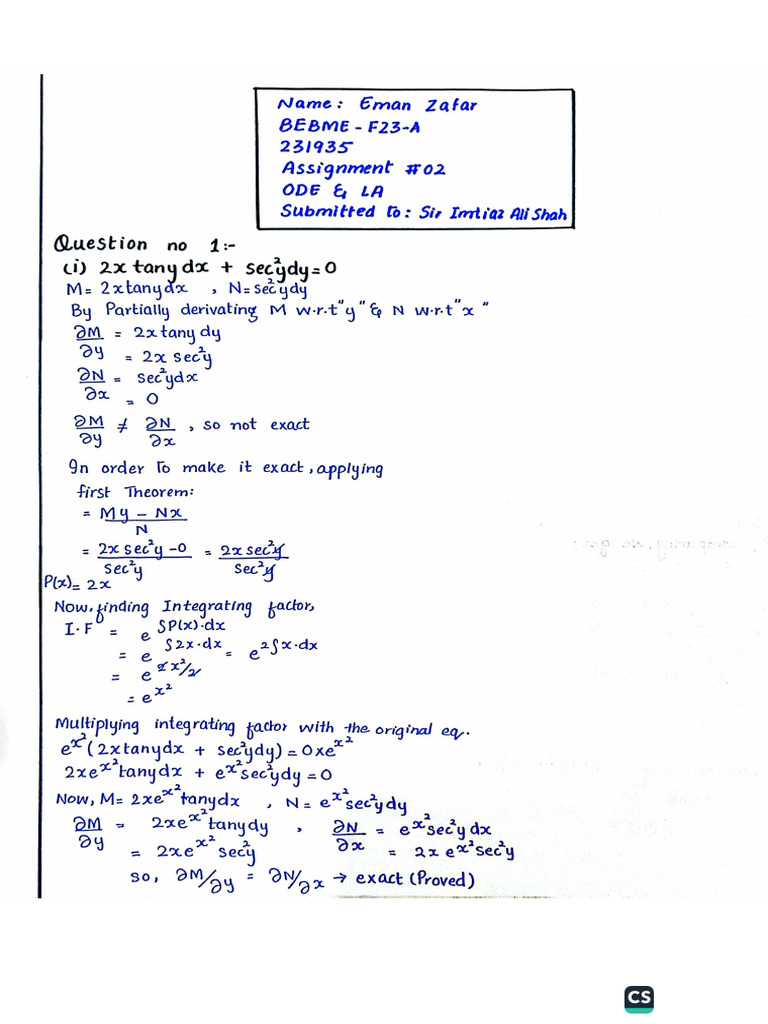 Name: Eman Zafar
BEBME - F23-A
231935
Assignment #02
ODE & LA
Submitted to: Sir Imtiaz Ali Shah
Question no 1:-
(i) 2x tany dx + sec²ydy = 0
M = 2xtanydx , N = sec²ydy
By Partially derivating M w.r.t "y" & N w.r.t "x"
∂M/∂y = 2xtany dy
= 2x sec²y
∂N/∂x = sec²ydx
= 0
∂M/∂y ≠ ∂N/∂x , so not exact
In order to make it exact, applying
first Theorem:
= My - Nx / N
= 2x sec²y - 0 / sec²y = 2x sec²y / sec²y
P(x) = 2x
Now, finding Integrating factor,
I.F = e^∫P(x)·dx
= e^∫2x·dx = e^2∫x·dx
= e^2x²/2
= e^x²
Multiplying integrating factor with the original eq.
e^x² (2xtanydx + sec²ydy) = 0xe^x²
2xe^x² tanydx + e^x² sec²ydy = 0
Now, M = 2xe^x² tanydx , N = e^x² sec²ydy
∂M/∂y = 2xe^x² tanydy , ∂N/∂x = e^x² sec²y dx
= 2xe^x² sec²y = 2x e^x² sec²y
so, ∂M/∂y = ∂N/∂x → exact (Proved)
CS